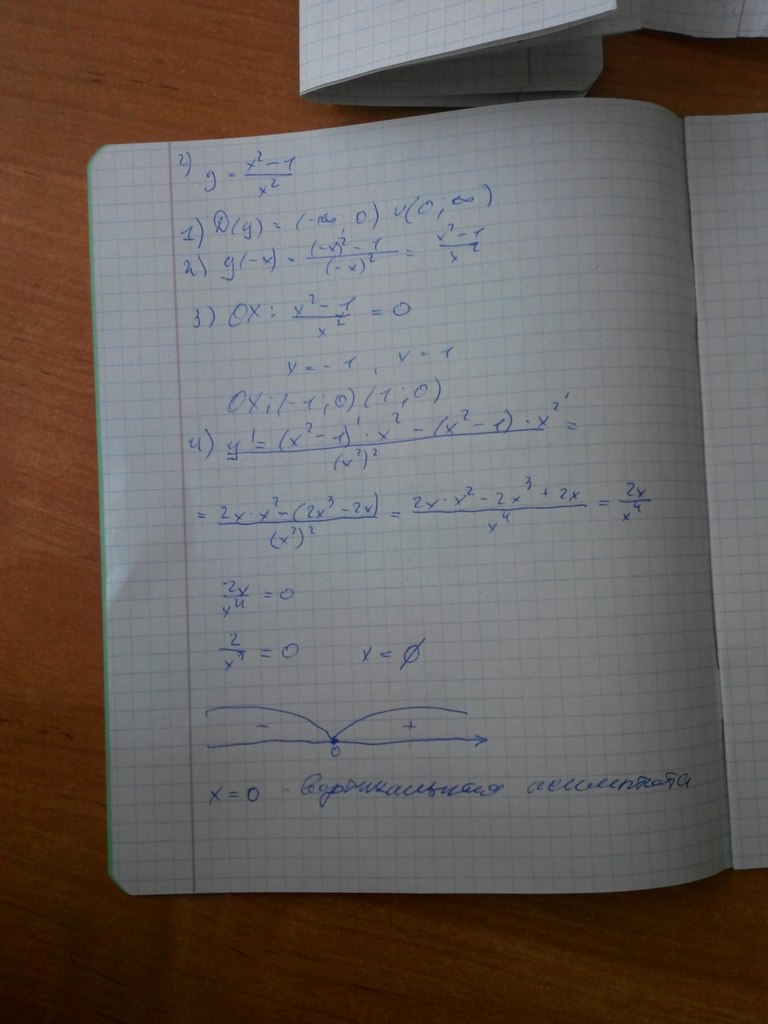 2) y = (x² - 1)/x²
1) D(y) = (-∞; 0) ∪ (0; ∞)
2) y(-x) = ((-x)² - 1)/(-x)² = (x² - 1)/x²
3) OX: (x² - 1)/x² = 0
x = -1, x = 1
OX: (-1; 0) (1; 0)
4) y' = ((x² - 1)' · x² - (x² - 1) · x²')/(x²)² =
= (2x · x² - (2x³ - 2x))/(x²)² = (2x · x² - 2x³ + 2x)/x⁴ = 2x/x⁴
2x/x⁴ = 0
2/x³ = 0 x = ∅
- +
0
x = 0 - вертикальная асимптота